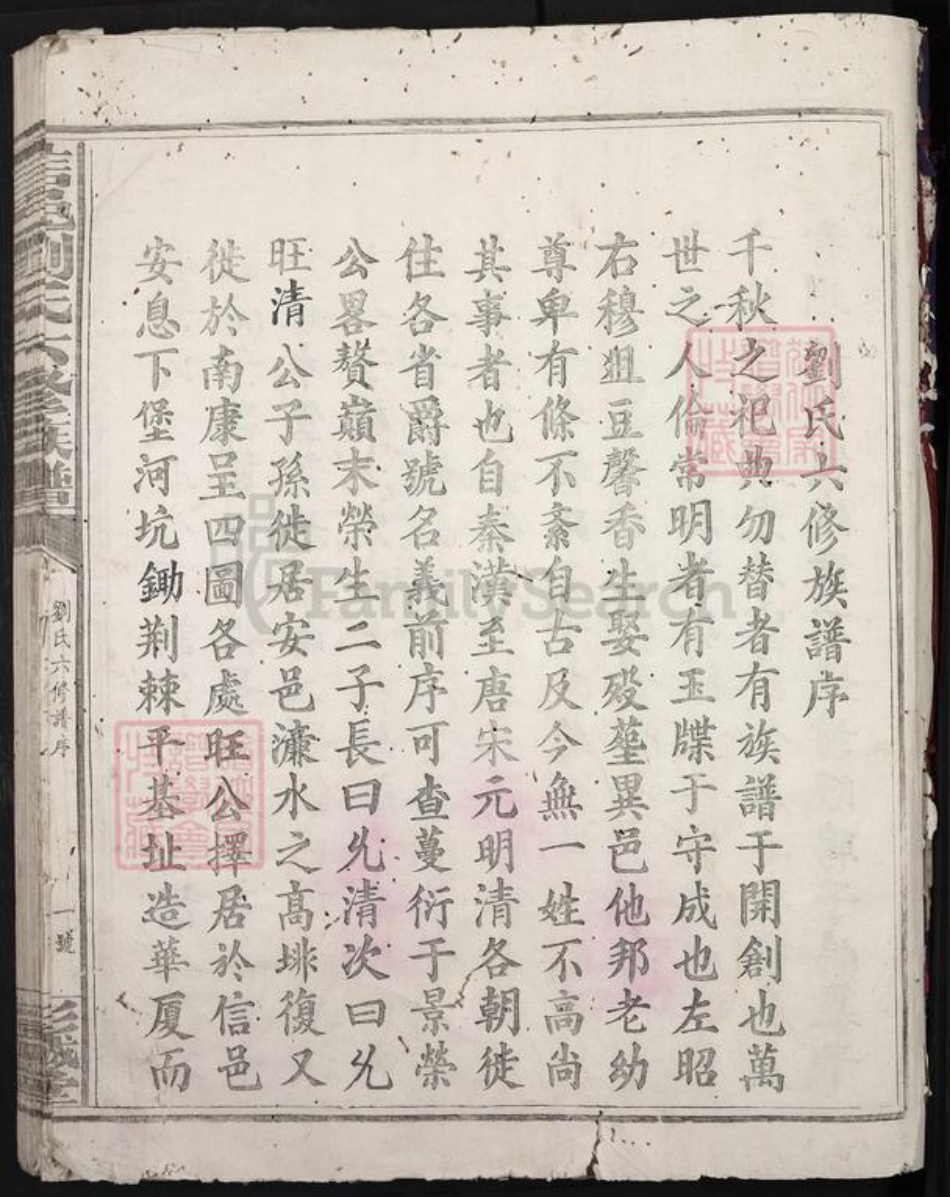 劉氏六修族譜序
千秋之祀典勿替者有族譜于開創也萬
世之人倫常明者有玉牒于守成也左昭
右穆俎豆馨香生娶殁塟異邑他邦老幼
尊卑有條不紊自古及今無一姓不高尚
其事者也自秦漢至唐宋元明清各朝徙
住各省爵號名義前序可查蔓衍于景榮
公畧贅巔末榮生二子長曰允清次曰允
旺清公子孫徙居安邑濂水之高排復又
徙於南康呈四圖各處旺公擇居於信邑
安息下堡河坑鋤荆棘平基址造華厦而
邑劉氏六修族譜
劉氏六修譜序
一號
FamilySearch